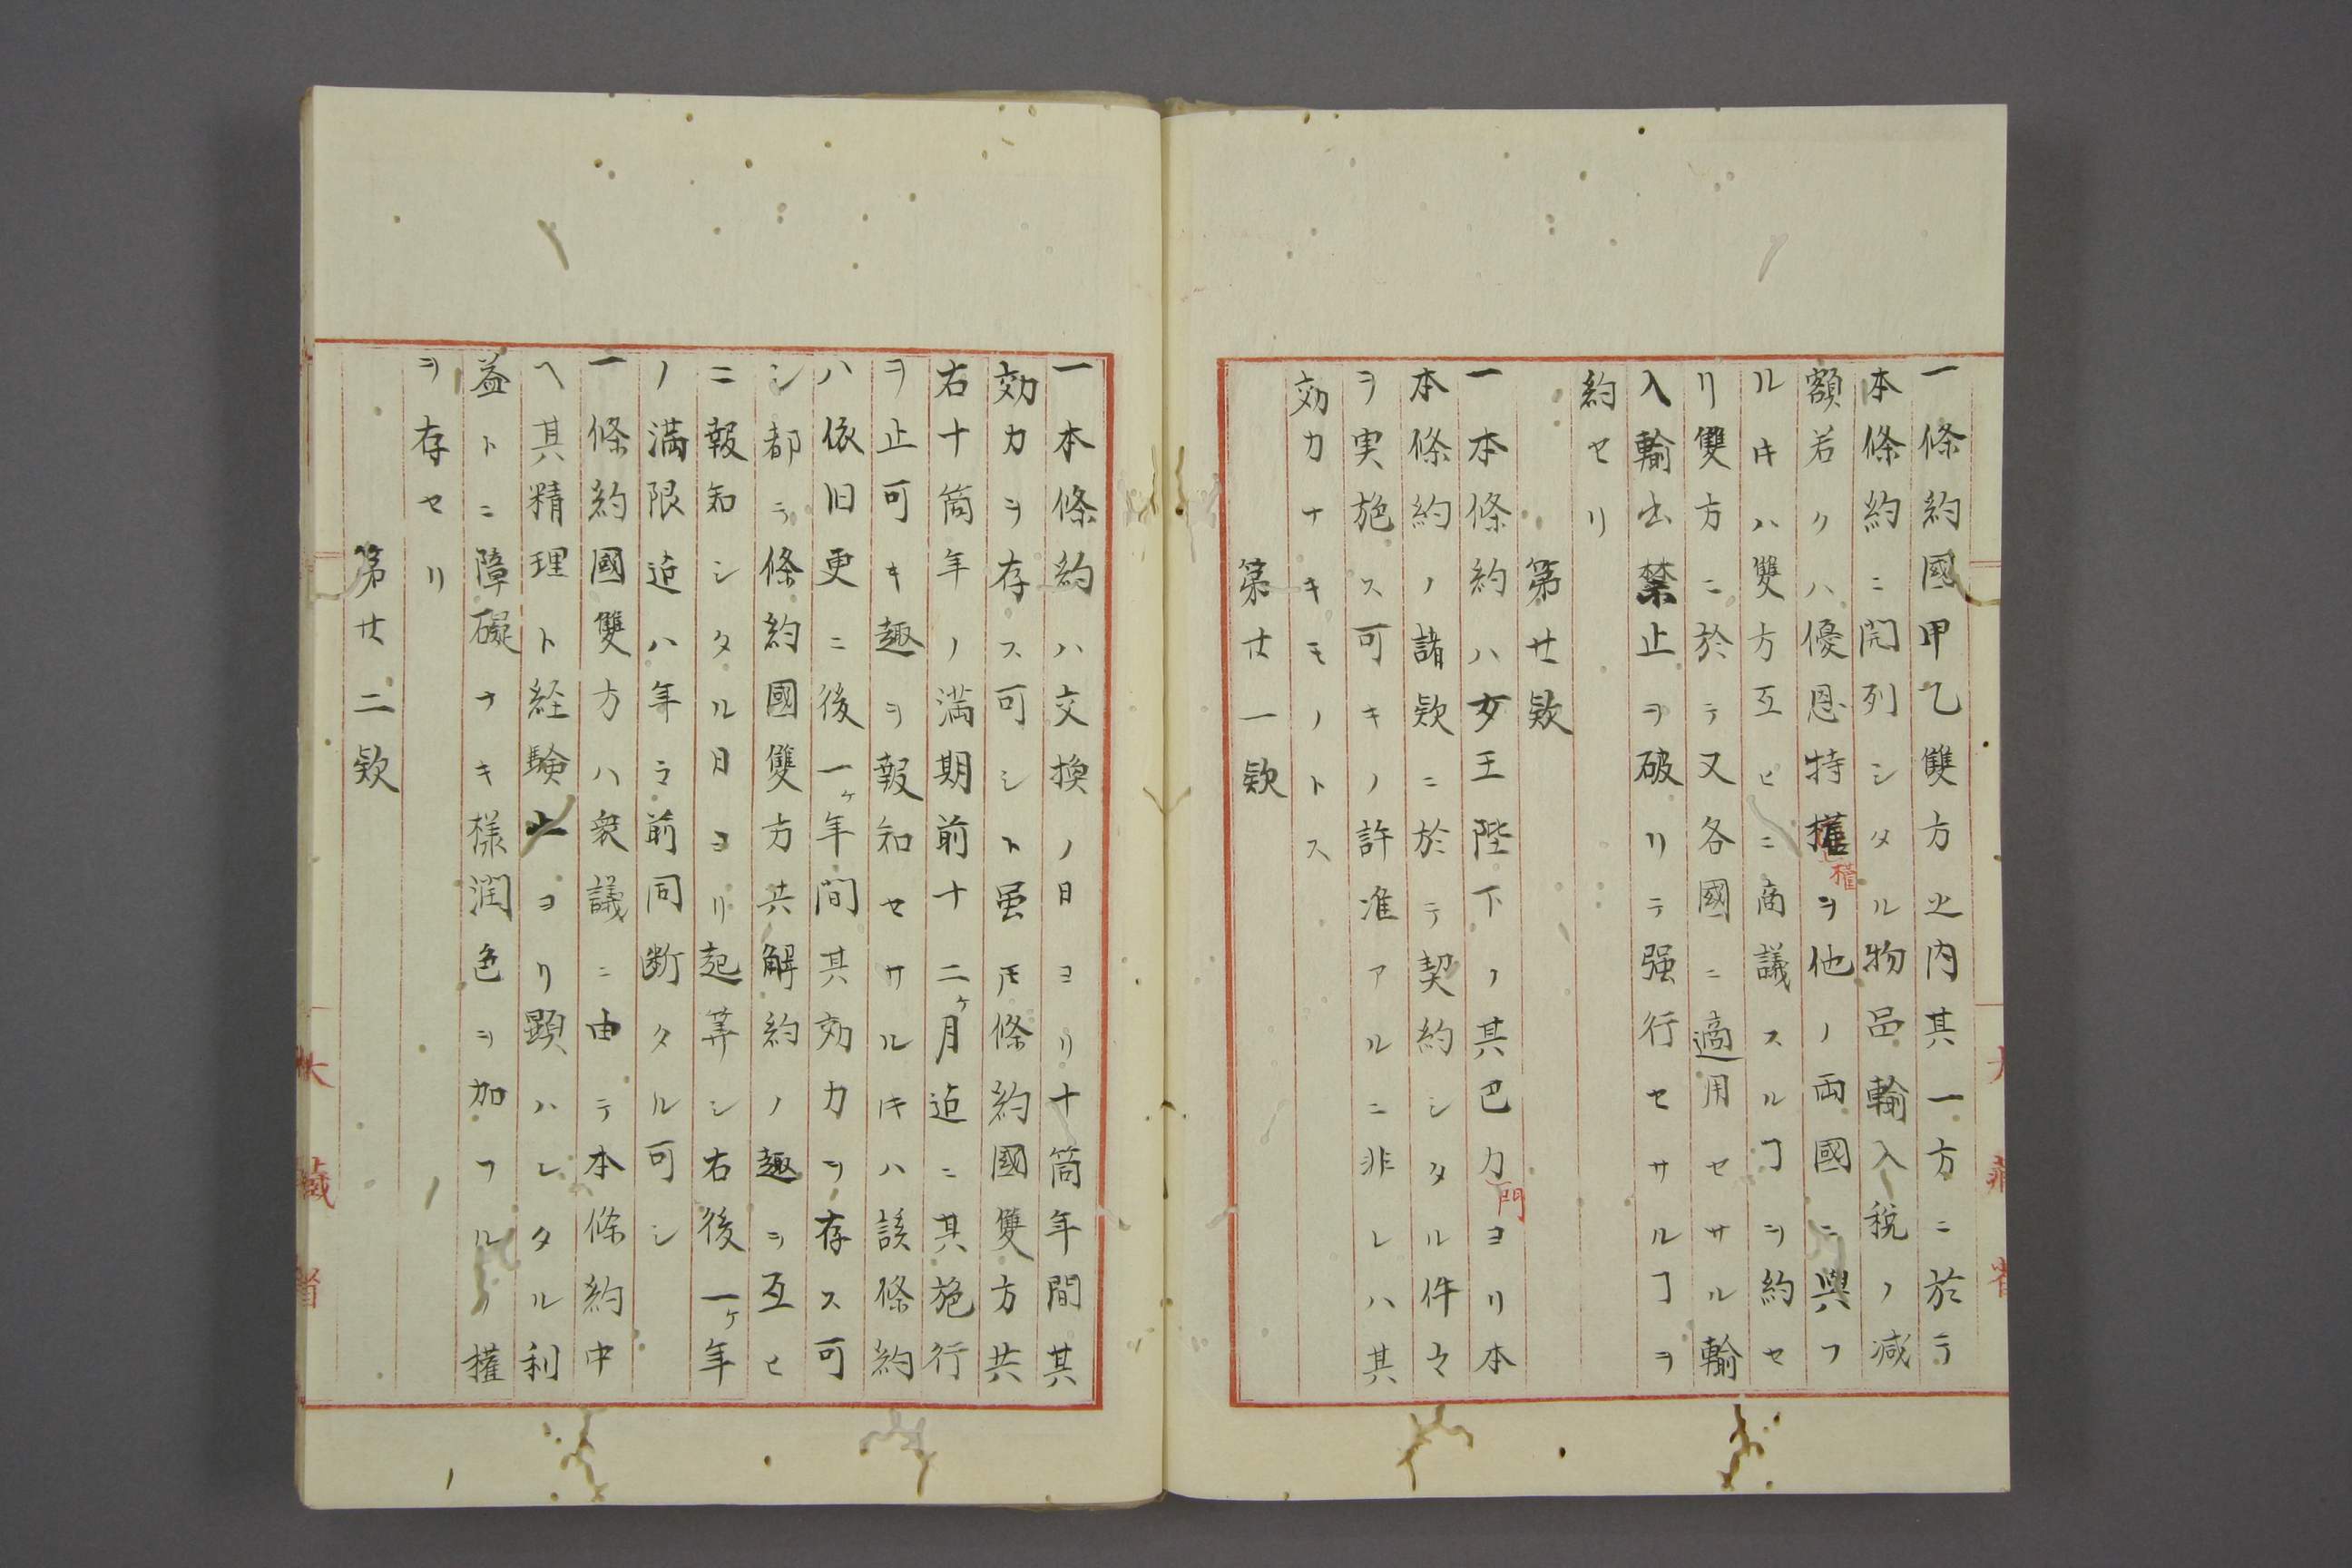 一條約國甲乙雙方之内其一方ニ於テ
本條約ニ開列シタル物品輸入税ノ減
額若クハ優恩特權ヲ他ノ両國ニ與フ
權
ルキハ雙方互ヒニ商議スルヿヲ約セ
リ雙方ニ於テ又各國ニ適用セサル輸
入輸出禁止ヲ破リテ强行セサルヿヲ
約セリ
第廿欵
一本條約ハ女王陛下ノ其巴力ヨリ本
門
本條約ノ諸欵ニ於テ契約シタル件々
ヲ実施ス可キノ許准アルニ非レハ其
効力ナキモノトス
第廿一欵
一本條約ハ交換ノ日ヨリ十箇年間其
効力ヲ存ス可シト虽𪜈條約國雙方共
右十箇年ノ満期前十二ヶ月迠ニ其施行
ヲ止可キ趣ヲ報知セサルキハ該條約
ハ依旧更ニ後一ヶ年間其効力ヲ存ス可
シ都テ條約國雙方共解約ノ趣ヲ互ヒ
ニ報知シタル日ヨリ起筭シ右後一ヶ年
ノ満限迠ハ年々前同断タル可シ
一條約國雙方ハ衆議ニ由テ本條約中
ヘ其精理ト経験上ヨリ顕ハレタル利
益トニ障礙ナキ様潤色ヲ加フルノ權
ヲ存セリ
第廿二欵
大藏省